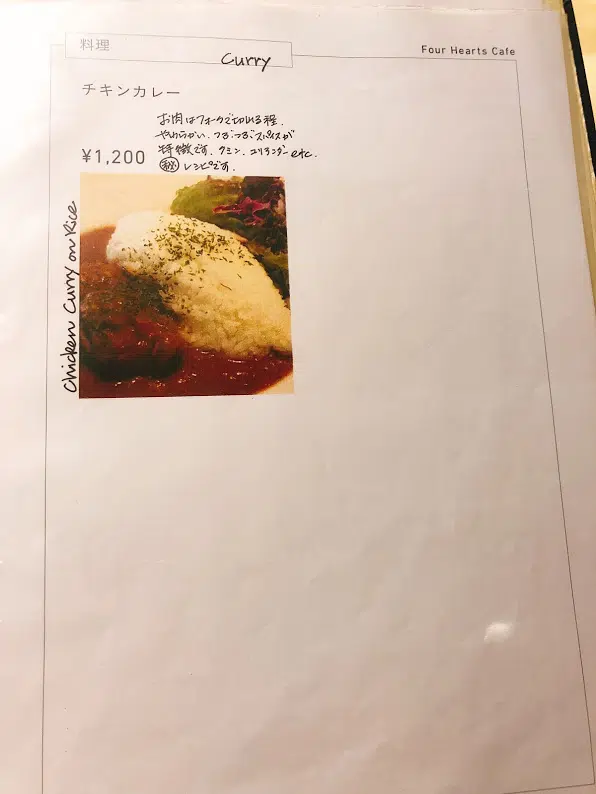 料理
Curry
Four Hearts Cafe
チキンカレー
お肉はフォークで切れる程.
やわらかい. つぶつぶスパイスが
特徴です. クミン. コリアンダーetc.
㊙レシピです.
¥1,200
Chicken Curry on Rice